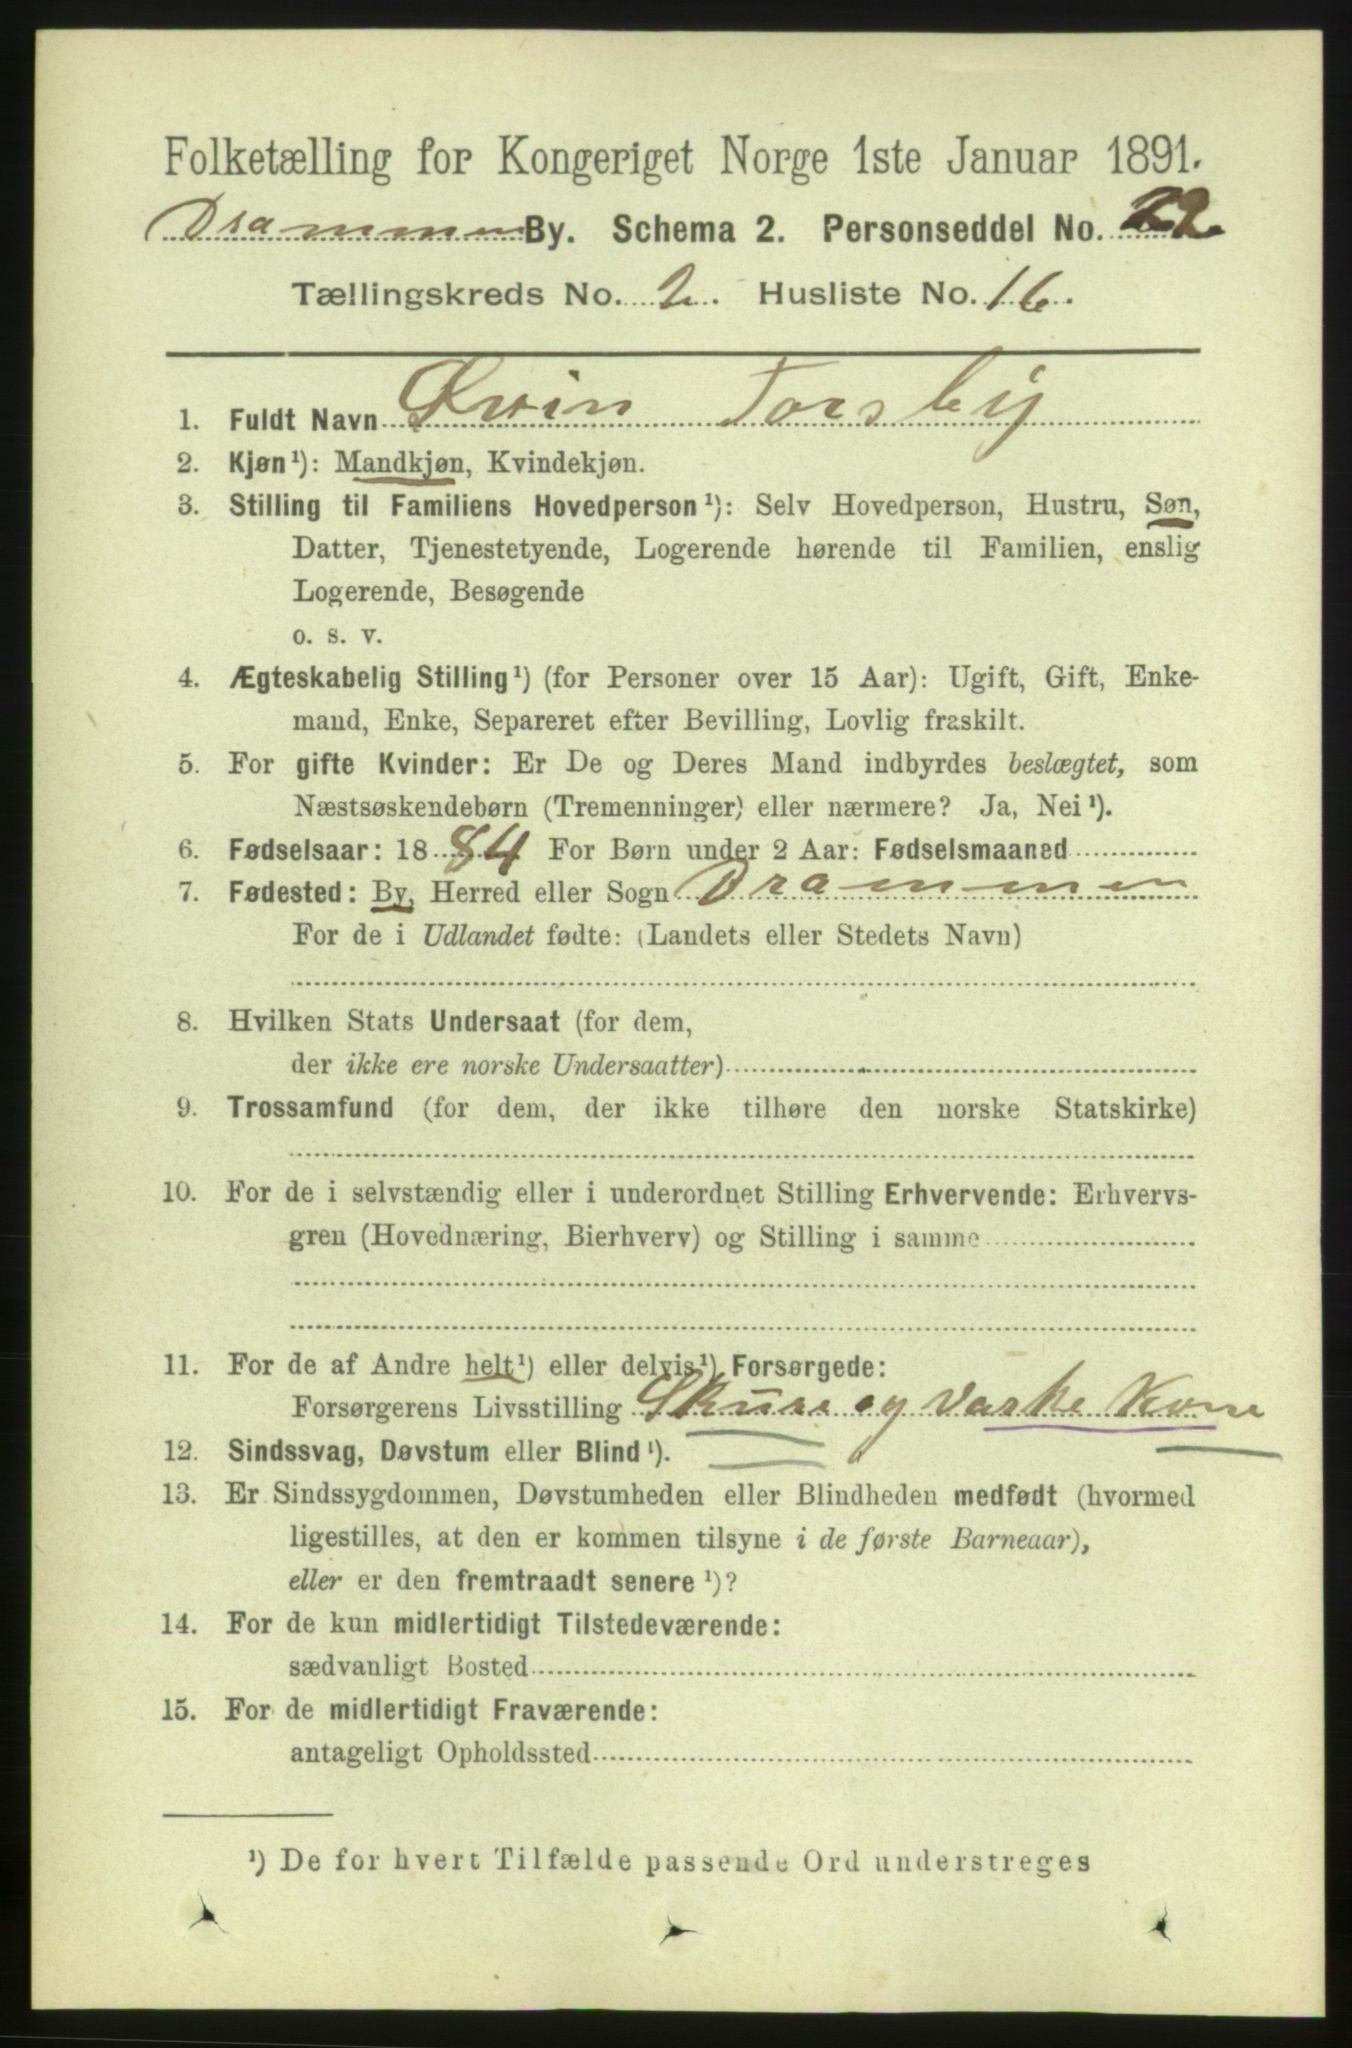 Folketælling for Kongeriget Norge 1ste Januar 1891.
Drammen By. Schema 2. Personseddel No. 22.
Tællingskreds No. 2. Husliste No. 16.
1. Fuldt Navn Øvin Torsby
2. Kjøn¹): Mandkjøn, Kvindekjøn.
3. Stilling til Familiens Hovedperson¹): Selv Hovedperson, Hustru, Søn,
Datter, Tjenestetyende, Logerende hørende til Familien, enslig
Logerende, Besøgende
o. s. v.
4. Ægteskabelig Stilling¹) (for Personer over 15 Aar): Ugift, Gift, Enke-
mand, Enke, Separeret efter Bevilling, Lovlig fraskilt.
5. For gifte Kvinder: Er De og Deres Mand indbyrdes beslægtet, som
Næstsøskendebørn (Tremenninger) eller nærmere? Ja, Nei¹).
6. Fødselsaar: 1884 For Børn under 2 Aar: Fødselsmaaned
7. Fødested: By, Herred eller Sogn Drammen
For de i Udlandet fødte: (Landets eller Stedets Navn)
8. Hvilken Stats Undersaat (for dem,
der ikke ere norske Undersaatter)
9. Trossamfund (for dem, der ikke tilhøre den norske Statskirke)
10. For de i selvstændig eller i underordnet Stilling Erhvervende: Erhvervs-
gren (Hovednæring, Bierhverv) og Stilling i samme
11. For de af Andre helt¹) eller delvis¹) Forsørgede:
Forsørgerens Livsstilling Skure og Vaske Kone
12. Sindssvag, Døvstum eller Blind¹).
13. Er Sindssygdommen, Døvstumheden eller Blindheden medfødt (hvormed
ligestilles, at den er kommen tilsyne i de første Barneaar),
eller er den fremtraadt senere¹)?
14. For de kun midlertidigt Tilstedeværende:
sædvanligt Bosted
15. For de midlertidigt Fraværende:
antageligt Opholdssted
¹) De for hvert Tilfælde passende Ord understreges